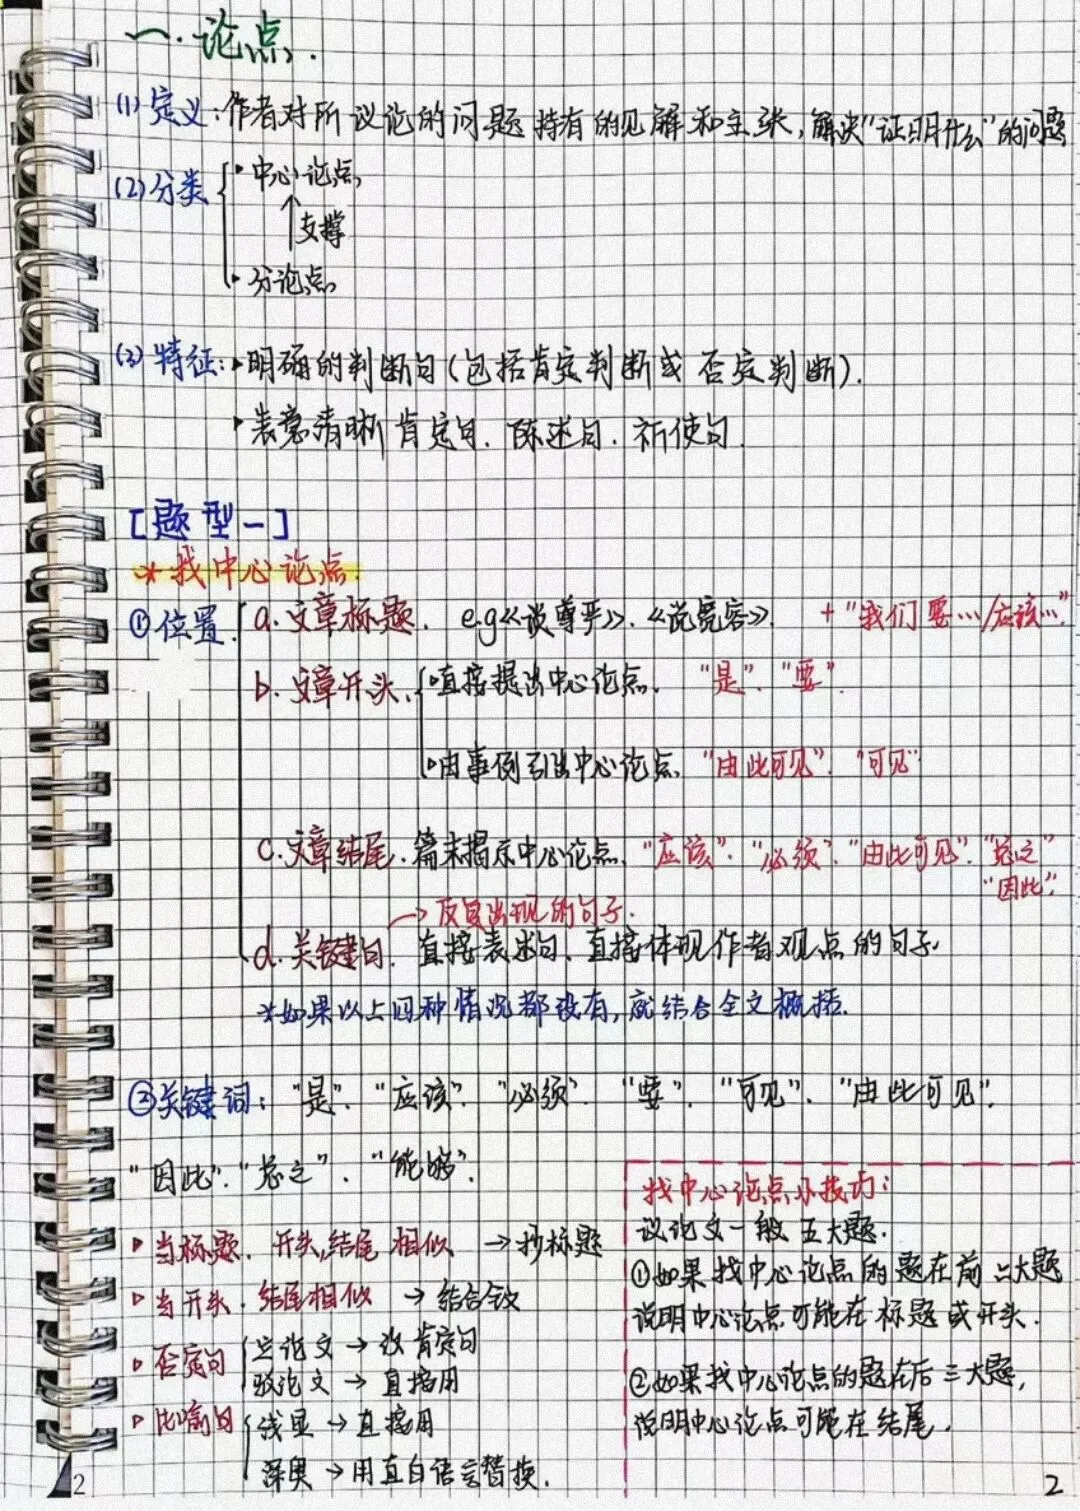 一.论点.
(1)定义:作者对所议论的问题持有的见解和主张,解决"证明什么"的问题
(2)分类
·中心论点
支撑
·分论点
(3)特征:·明确的判断句(包括肯定判断或否定判断).
·表意清晰 肯定句.陈述句.祈使句.
[题型一]
*找中心论点.
①位置.
a.文章标题. e.g《谈尊严》.《说宽容》. +"我们要…/应该…"
b.文章开头.
·直接提出中心论点. "是"."要".
·由事例引出中心论点. "由此可见"."可见"
c.文章结尾.篇末揭示中心论点."应该"."必须"."由此可见"."总之"
"因此".
→反复出现的句子.
d.关键句.直接表述句.直接体现作者观点的句子.
*如果以上四种情况都没有,就结合全文概括.
②关键词:"是"."应该"."必须"."要"."可见"."由此可见".
"因此"."总之"."能够".
·当标题.开头,结尾相似 →抄标题
·当开头.结尾相似 →结合全文
·否定句
立论文→改肯定句
驳论文→直接用
·比喻句
浅显→直接用
深奥→用直白语言替换.
找中心论点小技巧:
议论文一般五大题.
①如果找中心论点的题在前二大题
说明中心论点可能在标题或开头.
②如果找中心论点的题在后三大题,
说明中心论点可能在结尾.
2
2